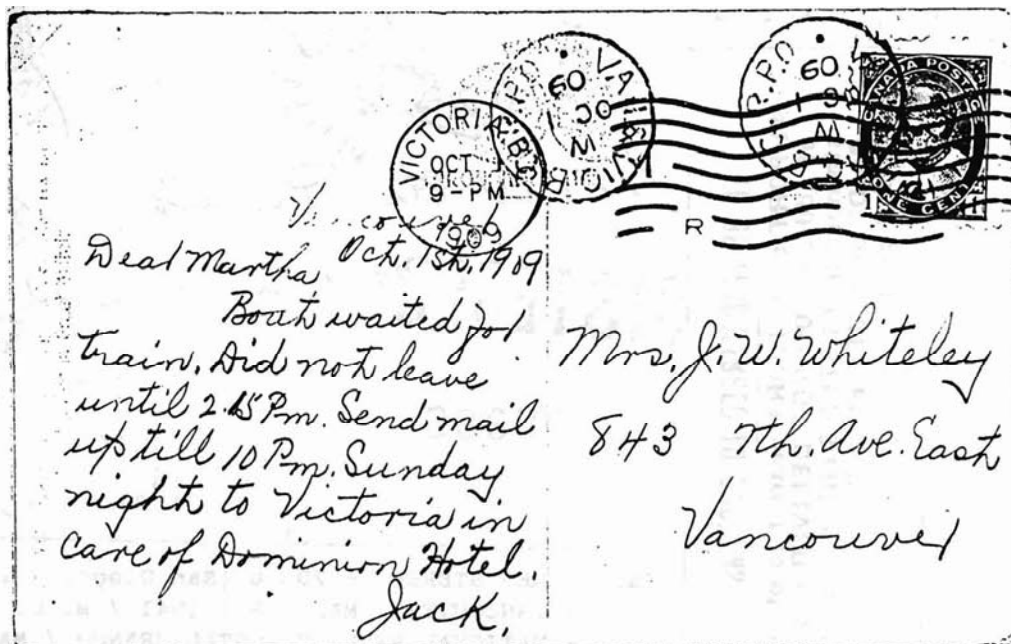 VICTORIA, B.C.
OCT 1
9-PM
1909
R.P.O.
09
OC 1
VA & VIC B
R.P.O.
09
CANADA POSTAGE
ONE CENT
R
Vancouver
Oct. 1st, 1909
Dear Martha
Boat waited for
train. Did not leave
until 2.15 Pm. Send mail
up till 10 Pm. Sunday
night to Victoria in
care of Dominion Hotel.
Jack.
Mrs. J. W. Whiteley
843 7th. Ave. East
Vancouver